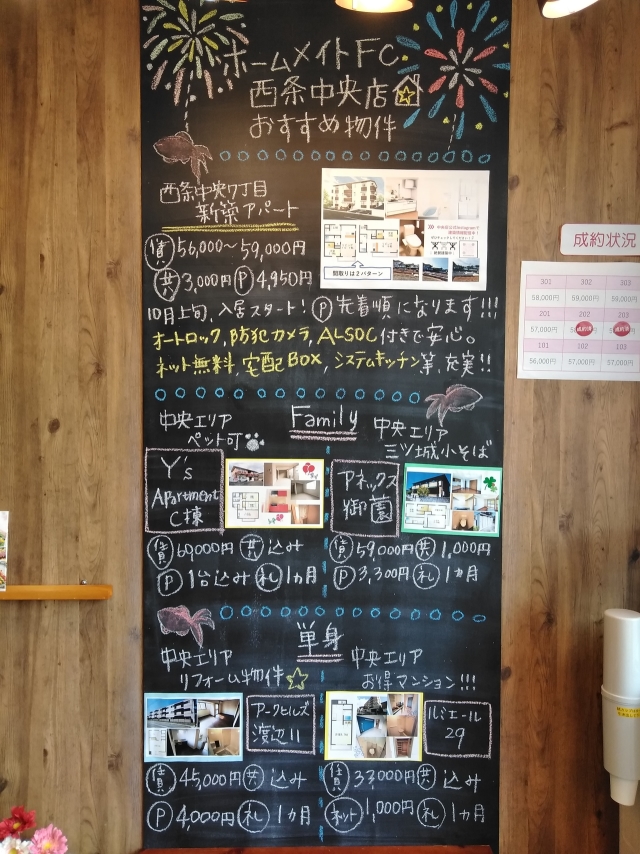 ホームメイトFC
西条中央店
おすすめ物件
西条中央7丁目
新築アパート
賃 56,000〜59,000円
共 3,000円 P 4,950円
間取りは2パターン
10月上旬、入居スタート! P 先着順になります!!!
オートロック,防犯カメラ,ALSOC付きで安心。
ネット無料,宅配BOX,システムキッチン等,充実!!
Family
中央エリア
ペット可
Y's
Apartment
C棟
賃 60,000円 共 込み
P 1台込み 礼 1ヵ月
中央エリア
三ツ城小そば
アネックス
御薗
賃 59,000円 共 1,000円
P 3,300円 礼 1ヵ月
単身
中央エリア
リフォーム物件
アークヒルズ
渡辺11
賃 45,000円 共 込み
P 4,000円 礼 1ヵ月
中央エリア
お得マンション!!!
ルミエール
29
賃 33,000円 共 込み
ネット 1,000円 礼 1ヵ月
成約状況
301 302 303
58,000円 59,000円 59,000円
201 202 203
57,000円 成約済
101 102 103
56,000円 57,000円 57,000円